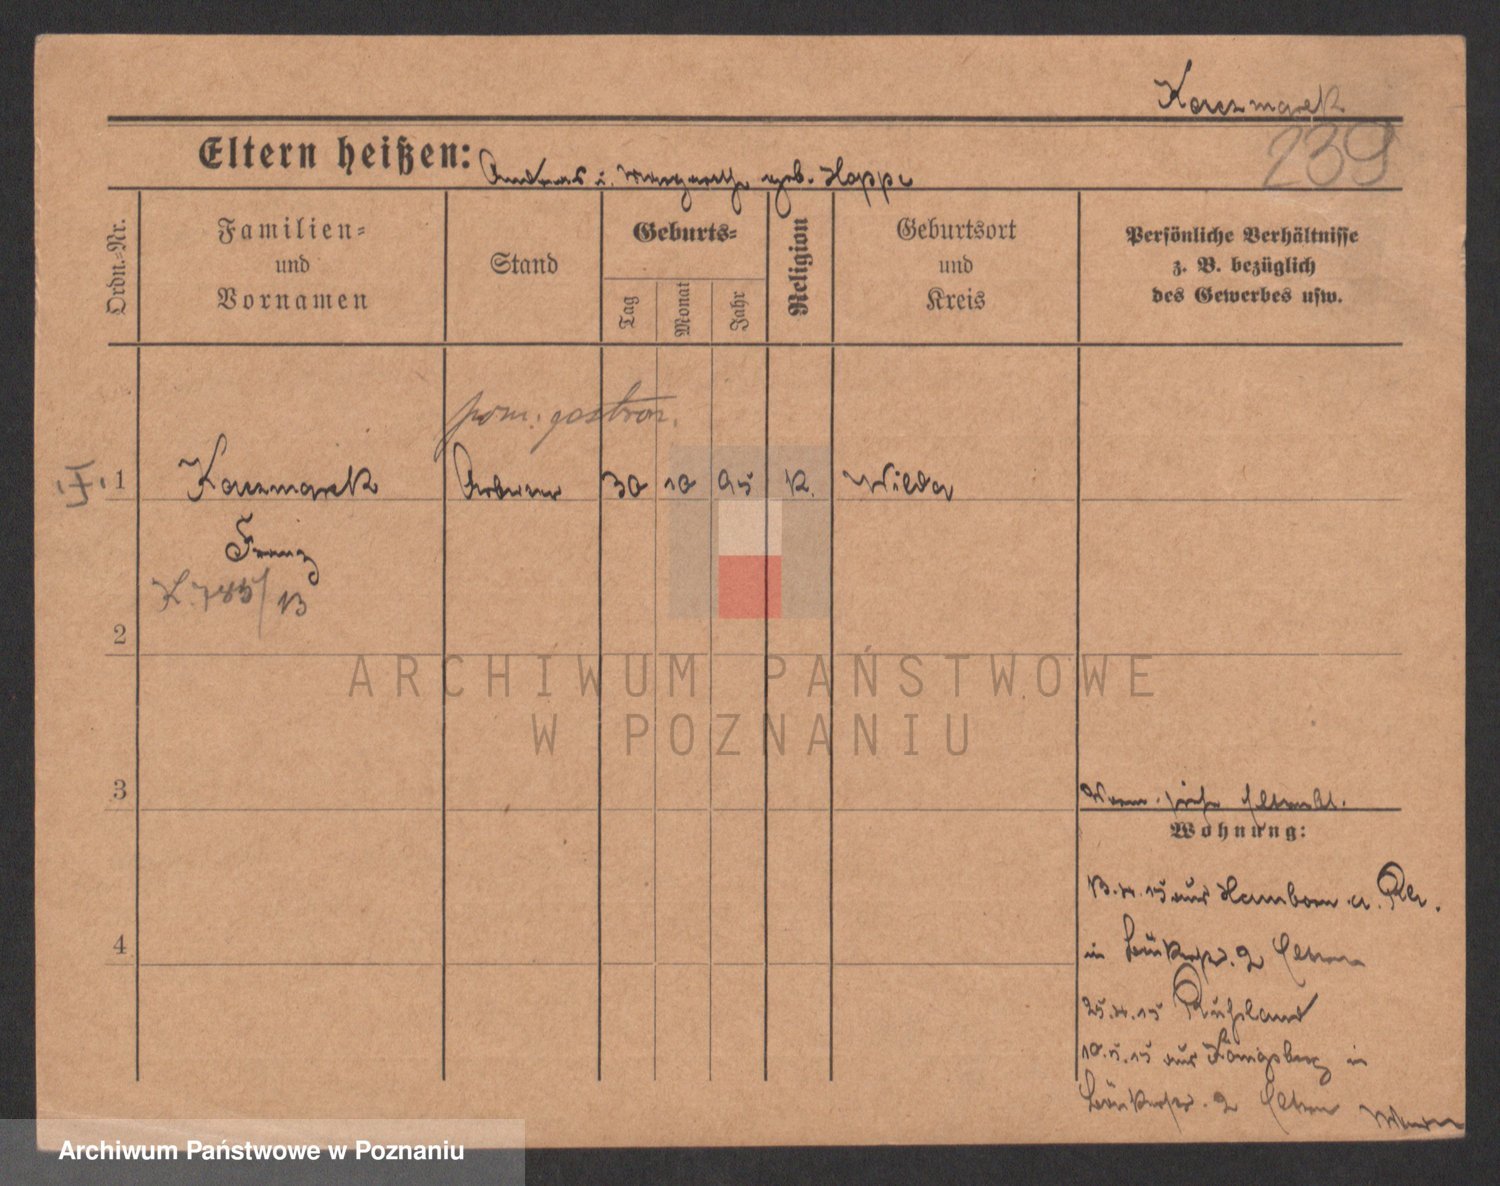 Kaczmarek
239
Eltern heißen: Andreas u. Margarethe geb. Hoppe
Ordn.-Nr.
Familien-
und
Vornamen
Stand
Geburts-
Tag
Monat
Jahr
Religion
Geburtsort
und
Kreis
Persönliche Verhältnisse
z. B. bezüglich
des Gewerbes usw.
pom. gastron.
1 Kaczmarek Arbeiter 30 10 95 K. Wilda
Franz
K. 785/13
2
ARCHIWUM PAŃSTWOWE
W POZNANIU
3
siehe
Wohnung:
4
13.4.15 aus Hamborn a. Rh.
in 2 Eltern
25.4.15 Rußland
10.5.15 aus Königsberg in
2 Eltern
Archiwum Państwowe w Poznaniu